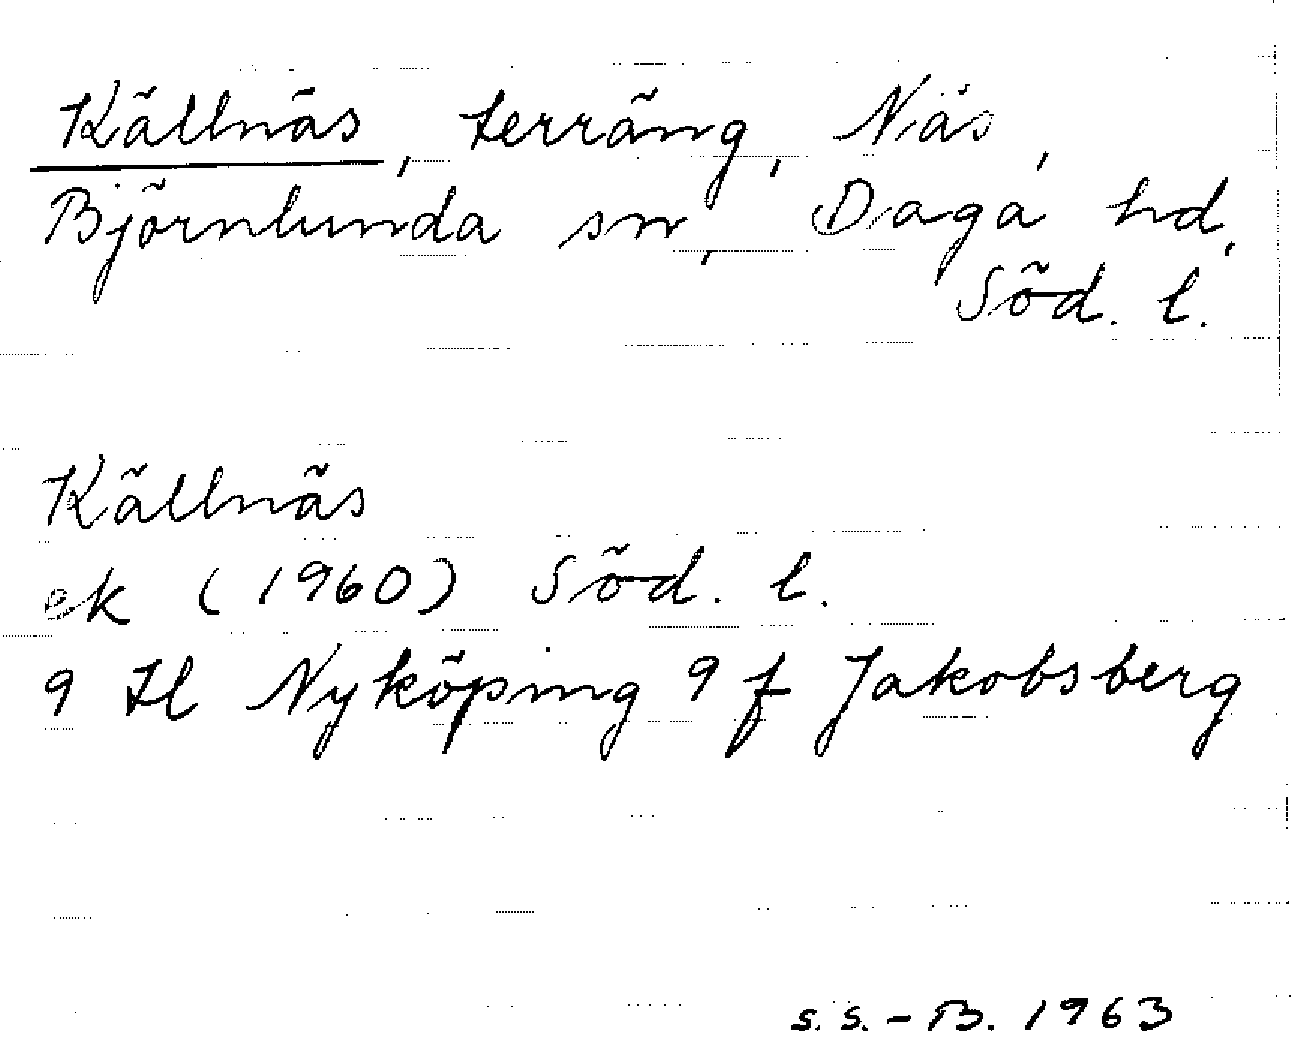 Källnäs, terräng, Näs,
Björnlunda sn, Daga hd,
Söd. l.
Källnäs
ek (1960) Söd. l.
9 H Nyköping 9 f Jakobsberg
s.s.-B. 1963